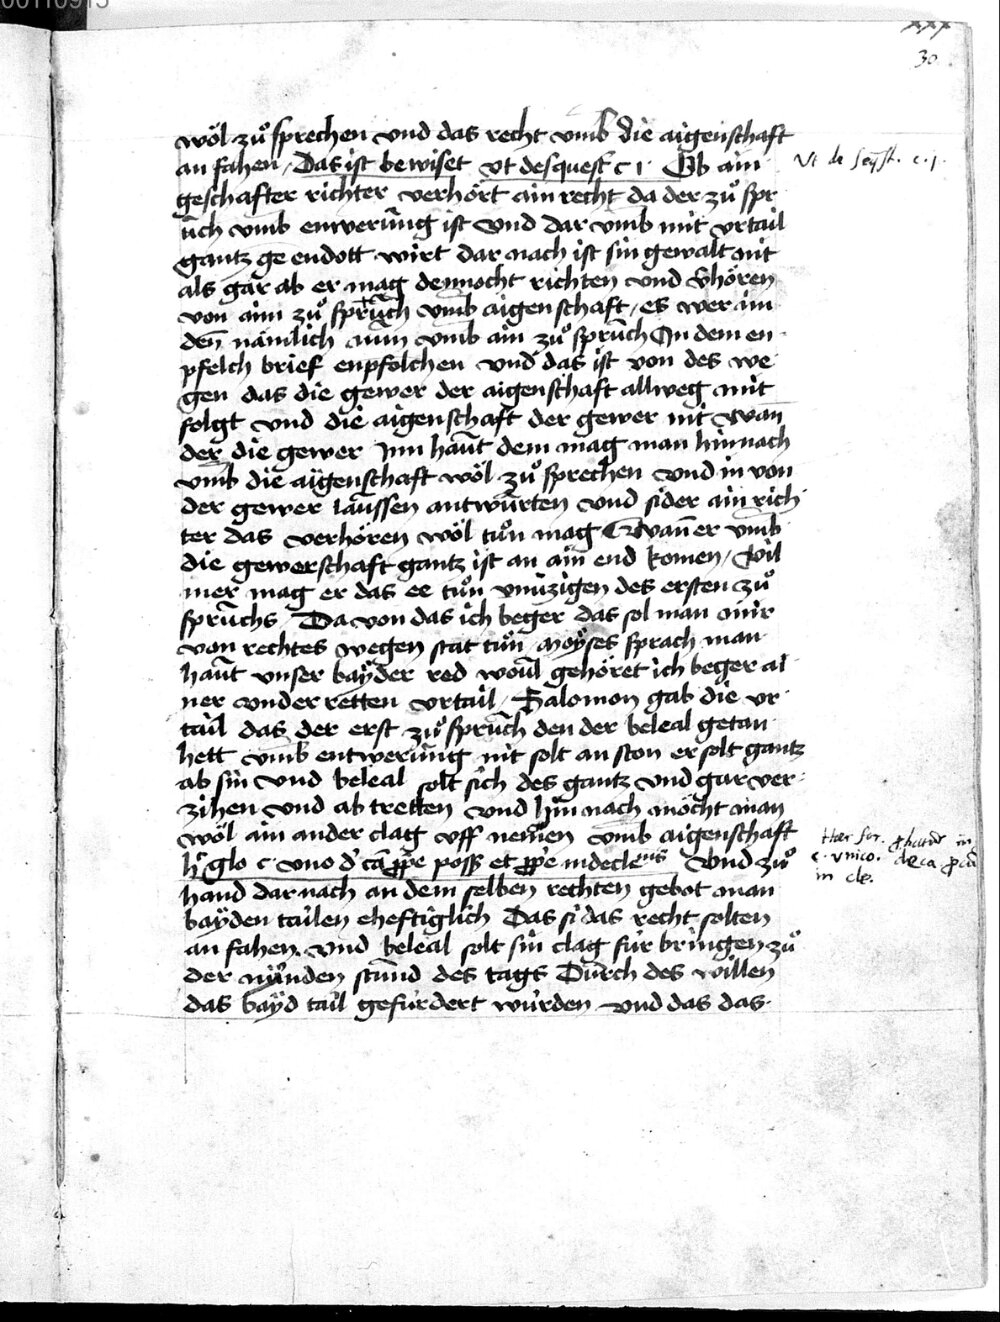 xxx
30
wöl zuͦ sprechen vnd das recht vmb die aigenschaft
an fahen / Das ist bewiset vt de sequest c 1 · Ob ain
Vt de seqst. c. j.
geschafter richter verhört ain recht da der zuͦ spr
üch vmb entwerüng ist vnd dar vmb mit vrtail
gantz ge endott wirt dar nach ist sin gewalt nit
als gar ab er mag dennocht richten vnd v̄hören
von aim zuͦ sprüch vmb aigenschaft / es wer im
den̄ nämlich num̄ vmb ain zuͦ sprüch In dem en
pfelch brief enpfolchen vnd das ist von des we
gen das die gewer der aigenschaft allweg mit
folgt vnd die aigenschaft der gewer nit wan
der die gewer Inn haut dem mag man hinnach
vmb die aÿgenschaft wöl zuͦ sprechen vnd in von
der gewer laussen antwürten vnd sider ain rich
ter das verhören wöl tuͦn mag Wann er vmb
die gewerschaft gantz ist an ain end komen / vil
mer mag er das ee tuͦn vmizigen des ersten zuͦ
sprüchs / Da von das ich beger das sol man mir
von rechtes wegen stat tuͦn / moÿses sprach man
haut vnser baÿder red woul gehöret ich beger ai
ner vnder retten vrtail / Salomon gab die vr
tail das der erst zuͦ sprüch den der beleal getan
hett vmb entwerüng nit solt an ston er solt gantz
ab sin vnd beleal solt sich des gantz vnd gar ver
zihen vnd ab tretten vnd hin nach möcht man
wöl ain ander clag vff nemen vmb aigenschaft
hͬ glo c · vno d' cā ꝓpe poss et ꝓpe in clens Vnd zuͦ
c. vnico. de ca
in cle.
hand dar nach an dem selben rechten gebot man
baÿden tailen eheftiglich Das si das recht solten
an fahen. vnd beleal solt sin clag für bringen zuͦ
der nünden stund des tags Durch des willen
das baÿd tail gefürdert würden vnd das das